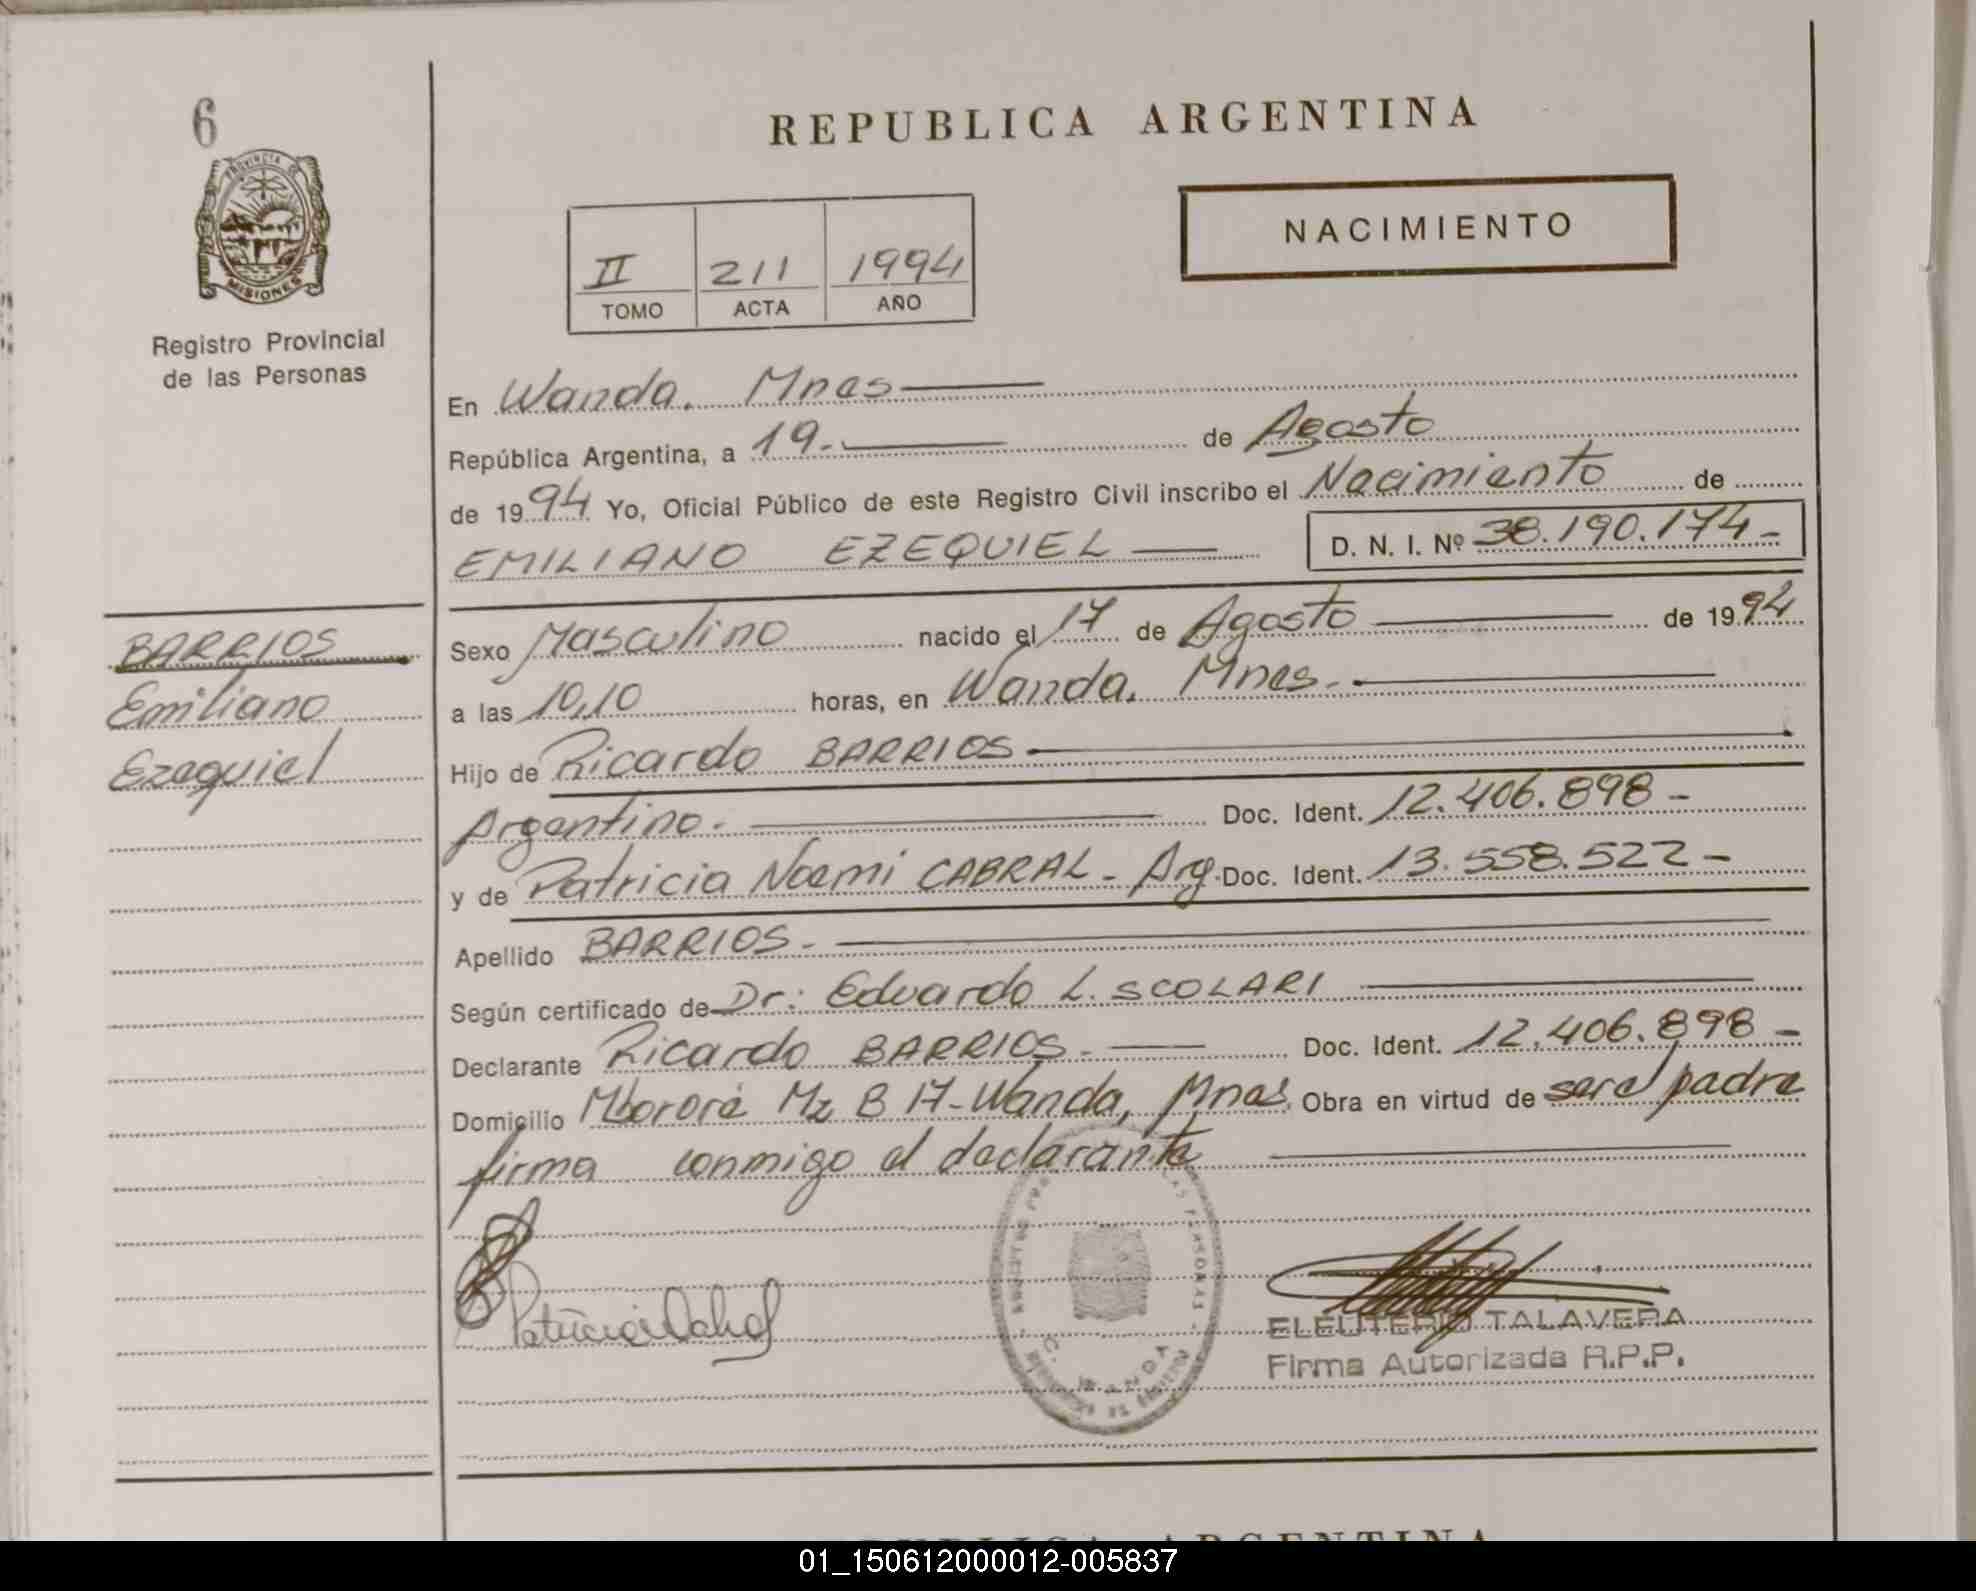 6
PROVINCIA DE
MISIONES
Registro Provincial
de las Personas
BARRIOS
Emiliano
Ezequiel
REPUBLICA ARGENTINA
NACIMIENTO
II 211 1994
TOMO ACTA AÑO
En Wanda. Mnes
República Argentina, a 19.- de Agosto
de 1994 Yo, Oficial Público de este Registro Civil inscribo el Nacimiento de
EMILIANO EZEQUIEL D. N. I. Nº 38.190.174-
Sexo Masculino nacido el 17 de Agosto de 1994
a las 10,10 horas, en Wanda. Mnes.-
Hijo de Ricardo BARRIOS
Argentino. Doc. Ident. 12.406.898-
y de Patricia Noemi CABRAL- Arg. Doc. Ident. 13.558.522-
Apellido BARRIOS.-
Según certificado de Dr: Eduardo L. SCOLARI
Declarante Ricardo BARRIOS.- Doc. Ident. 12.406.898-
Domicilio Mbororé Mz B 17-Wanda, Mnes. Obra en virtud de ser el padre
firma conmigo el declarante
PERSONAS
WANDA
ELEUTERIO TALAVERA
Firma Autorizada R.P.P.
REPUBLICA ARGENTINA
01_150612000012-005837